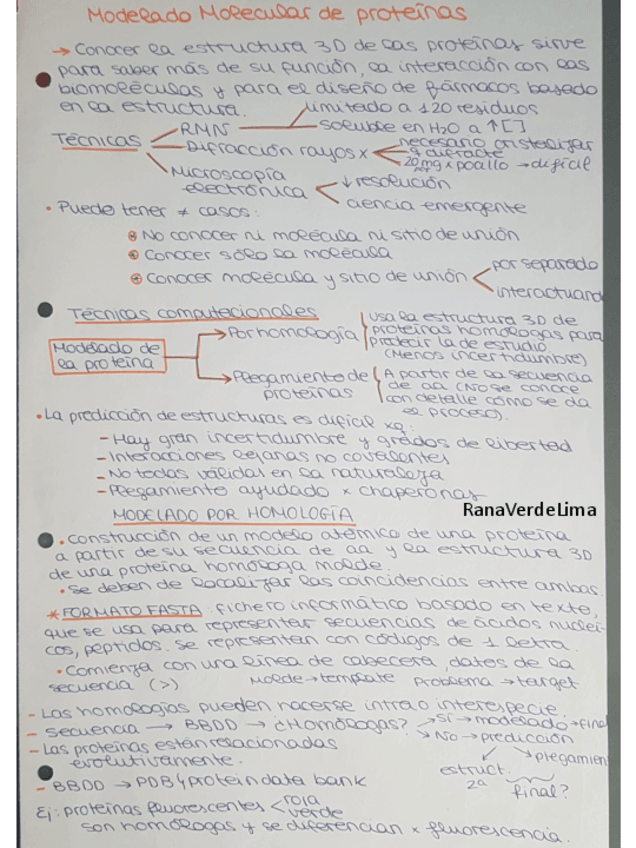 Modelado Molecular de proteínas
→ Conocer la estructura 3D de las proteínas sirve
para saber más de su función, la interacción con las
biomoléculas y para el diseño de fármacos basado
en la estructura.
limitado a 120 residuos
Técnicas
RMN
soluble en H2O a ↑[ ]
Difracción rayos x
necesario cristalizar
q difracte
20 mg x pocillo → difícil
Microscopía
electrónica
↓ resolución
ciencia emergente
• Puedo tener ≠ casos:
No conocer ni molécula ni sitio de unión
Conocer sólo la molécula
Conocer molécula y sitio de unión
por separado
interactuand
Técnicas computacionales
Modelado de
la proteína
Por homología
Usa la estructura 3D de
proteínas homólogas para
predecir la de estudio
(Menos incertidumbre)
Plegamiento de
proteínas
A partir de la secuencia
de aa (No se conoce
con detalle cómo se da
el proceso).
• La predicción de estructuras es difícil xq:
- Hay gran incertidumbre y grados de libertad
- Interacciones lejanas no covalentes
- No todas válidas en la naturaleza
- Plegamiento ayudado x chaperonas
RanaVerdeLima
MODELADO POR HOMOLOGÍA
• Construcción de un modelo atómico de una proteína
a partir de su secuencia de aa y la estructura 3D
de una proteína homóloga molde.
• Se deben de localizar las coincidencias entre ambas.
* FORMATO FASTA: fichero informático basado en texto,
que se usa para representar secuencias de ácidos nuclei-
cos, péptidos. Se representan con códigos de 1 letra.
• Comienza con una línea de cabecera, datos de la
secuencia (>)
Molde → template
Problema → target
- Las homologías pueden hacerse intra o interespecie.
- Secuencia → BBDD → ¿Homólogas?
→ sí → modelado → final
→ No → predicción
- Las proteínas están relacionadas
evolutivamente.
estruct.
2ª
plegamien
final?
- BBDD → PDB
protein data bank
Ej: proteínas fluorescentes
roja
verde
son homólogas y se diferencian x fluorescencia.